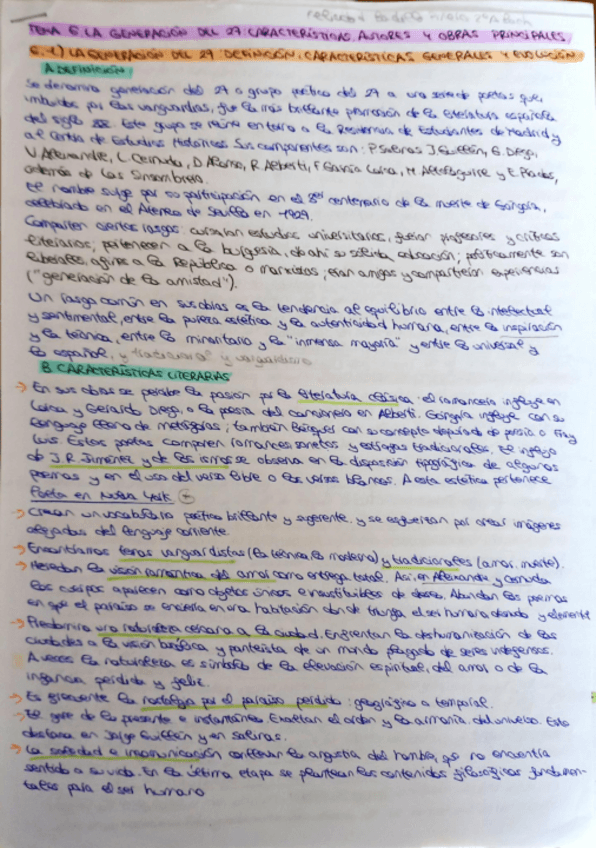 TEMA 6. LA GENERACIÓN DEL 27. CARACTERÍSTICAS, AUTORES Y OBRAS PRINCIPALES
6.1) LA GENERACIÓN DEL 27: DEFINICIÓN, CARACTERÍSTICAS GENERALES Y EVOLUCIÓN
A DEFINICIÓN
Se denomina generación del 27 o grupo poético del 27 a una serie de poetas que,
imbuidos por las vanguardias, fue la más brillante promoción de la literatura española
del siglo XX. Este grupo se reúne en torno a la Residencia de Estudiantes de Madrid y
al Centro de Estudios Históricos. Sus componentes son: P Salinas, J. Guillén, G. Diego,
V. Aleixandre, L. Cernuda, D. Alonso, R. Alberti, F. García Lorca, M. Altolaguirre y E. Prados,
además de Las Sinsombrero.
El nombre surge por su participación en el 3er centenario de la muerte de Góngora,
celebrado en el Ateneo de Sevilla en
Comparten ciertos rasgos: cursaron estudios universitarios, fueron profesores y críticos
literarios; pertenecen a la burguesía, de ahí su sólida educación; políticamente son
liberales, afines a la República o marxistas; eran amigos y compartieron experiencias
("generación de la amistad").
Un rasgo común en sus obras es la tendencia al equilibrio entre lo intelectual
y sentimental, entre la pureza estética y la autenticidad humana, entre la inspiración
y la técnica, entre lo minoritario y la "inmensa mayoría" y entre lo universal y
lo español, y tradicional y vanguardismo
B CARACTERÍSTICAS LITERARIAS
→ En sus obras se percibe la pasión por la literatura clásica: el romancero influye en
Lorca y Gerardo Diego, o la poesía del cancionero en Alberti. Góngora influye con su
lenguaje lleno de metáforas; también Bécquer con su concepto depurado de poesía o Fray
Luis. Estos poetas componen romances, sonetos y estrofas tradicionales. El influjo
de J.R. Jiménez y de los ismos se observa en la disposición tipográfica de algunos
poemas y en el uso del verso libre o los versos blancos. A esta estética pertenece
Poeta en Nueva York
→ Crean un vocabulario poético brillante y sugerente, y se esfuerzan por crear imágenes
alejadas del lenguaje corriente.
→ Encontramos temas vanguardistas (la técnica, lo moderno) y tradicionales (amor, muerte).
→ Heredan la visión romántica del amor como entrega total. Así, en Aleixandre y Cernuda
los cuerpos aparecen como objetos únicos e insustituibles de deseo. Abundan los poemas
en que el paraíso se encierra en una habitación donde triunfa el ser humano desnudo y elemental
→ Predomina una naturaleza cercana a la ciudad. Enfrentan la deshumanización de las
ciudades a la visión bucólica y panteísta de un mundo plagado de seres indefensos.
A veces la naturaleza es símbolo de la elevación espiritual, del amor o de la
infancia perdida y feliz.
→ Es frecuente la nostalgia por el paraíso perdido: geográfico o temporal.
→ El goce de lo presente e instantáneo. Exaltan el orden y la armonía del universo. Esto
destaca en Jorge Guillén y en Salinas.
→ La soledad e incomunicación conllevan la angustia del hombre, que no encuentra
sentido a su vida. En la última etapa se plantean los contenidos filosóficos fundamen-
tales para el ser humano